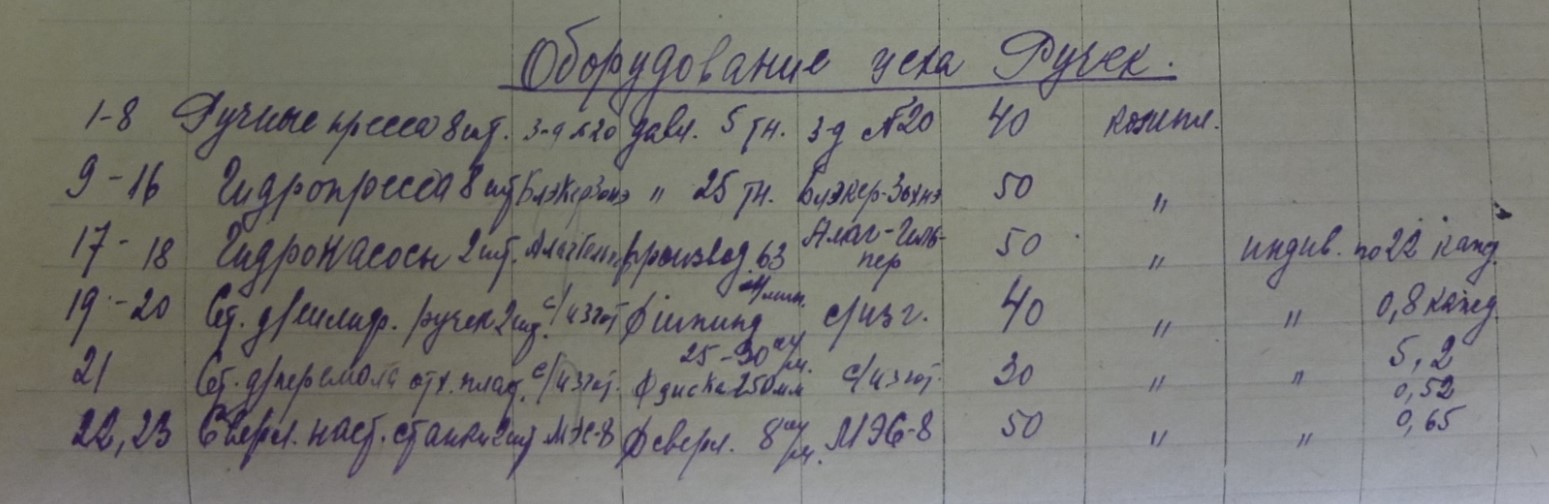 Оборудование цеха Ручек.
1-8 Ручные пресса 8 шт. з-д №20 давл. 5 тн. з-д №20 40 компл.
9-16 Гидропресса 8 шт Блэкер Зонэ " 25 тн. Блэкер-Зохнэ 50 "
17-18 Гидронасосы 2 шт. производ. 63 л/мин. Алаг-Гель-пер 50 " индив. по 22 кажд.
19-20 Ст. д/шлиф. ручек 2 шт. с/изгот ф шпинд 25-30 м/м. с/изг. 40 " " 0,8 кажд
21 Ст. д/перемола отх. плас. с/изгот. ф диска 250 мм с/изгот. 30 " " 5,2
0,52
22, 23 Сверл. наст. станки 2 шт МЭС-8 ф сверл. 8 м/м. МЭС-8 50 " " 0,65